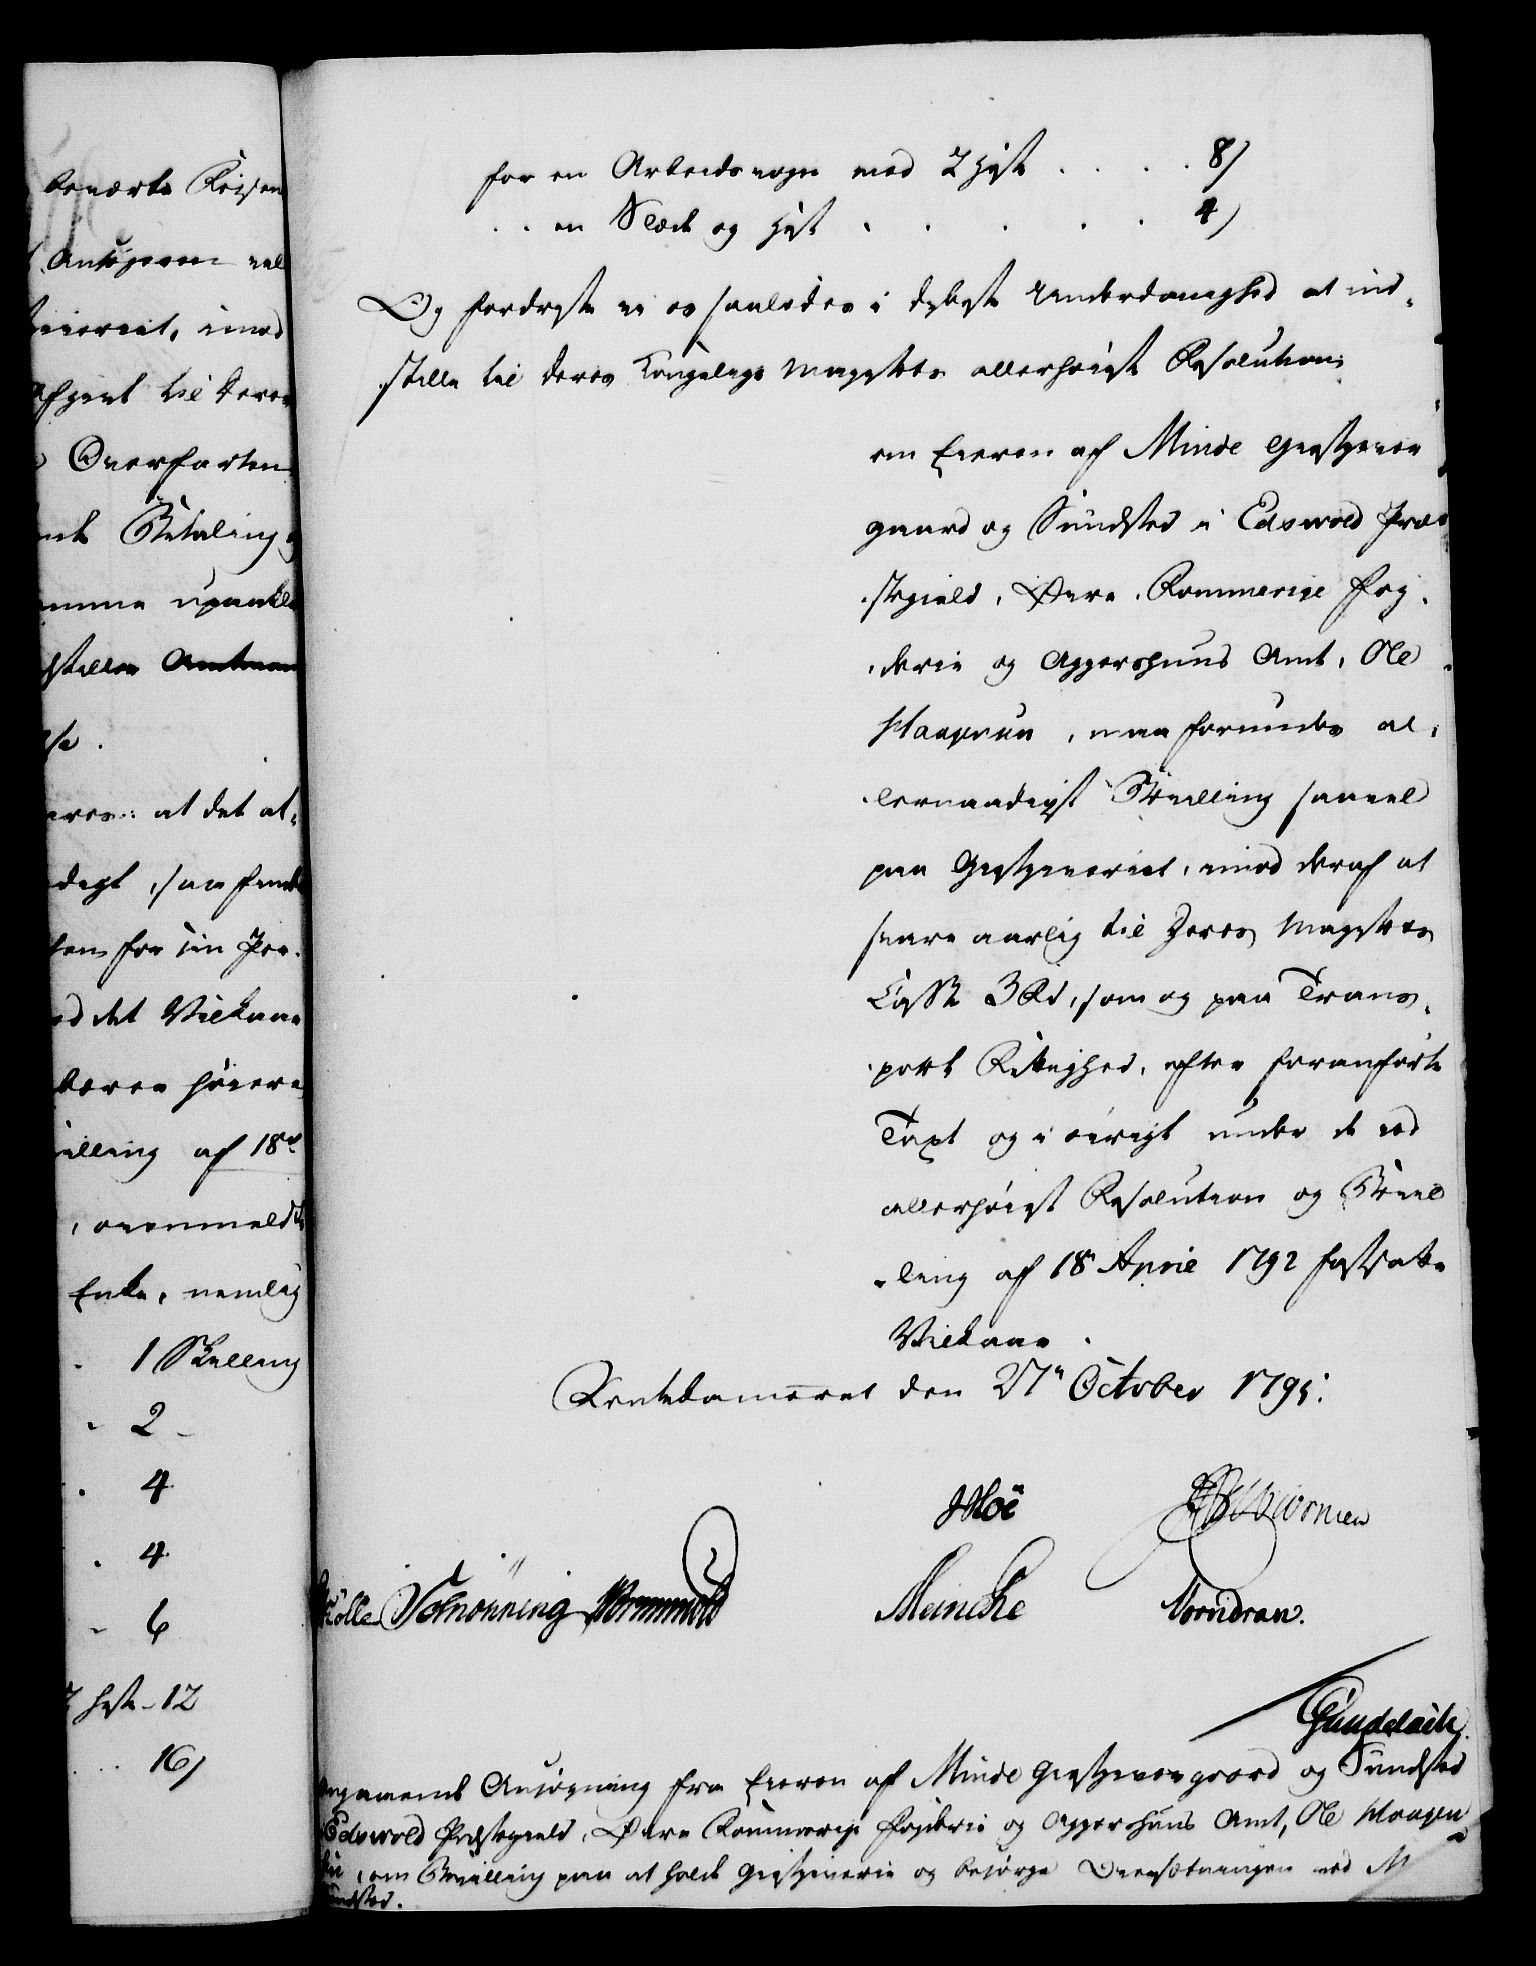 benærte Reisen
Ansøgeren vel
giveriet, imod
Afgivt til Deres
Overfarten
Betaling
omme upaakla
stiller Amtman
lse.
eres: at det al-
digt, saa finde
for sin Per-
ed det Vilkaar
bører høiere
villing af 18de
, ovenmeldte
Enke, nemlig
1 Skilling
2 -
4
4
6
2 Heste - 12
16/
for en Arbeidsvogn med 2 Heste . . . . 8/
. . en Slæde og Hest . . . . . 4/
Og fordriste vi os saaledes i dybeste Underdanighed at ind-
stille til Deres Kongelige Majestets allerhøieste Resolution:
om Eieren af Minde Giestgiver
gaard og Sundsted i Edsvold Præ
stegield, Øvre Rommerige Fog-
derie og Aggershuus Amt, Ole
Haagensen, maa forundes al-
lernaadigst Bevilling saavel
paa Giestgiveriet, imod deraf at
svare aarlig til Deres Majestets
Casse 3 Rd, som og paa Trans-
port Rettighed, efter foranførte
Taxt og i øvrigt under de ved
allerhøieste Resolution og Bevil
ling af 18 April 1792 fastsatte
Vilkaar.
Rentekammeret den 27n October 1795.
JMoe
Rølle Schønning Wormskiold Meincke Norndran.
Gundelach.
Angaaende Ansøgning fra Eieren af Minde Giestgivergaard og Sundsted
Edsvold Præstegield, Øvre Rommerige Fogderie og Aggershuus Amt, Ole Haagen
om Bevilling paa at holde Giestgiverie og besørge Oversætningen ved M
Sundsted.